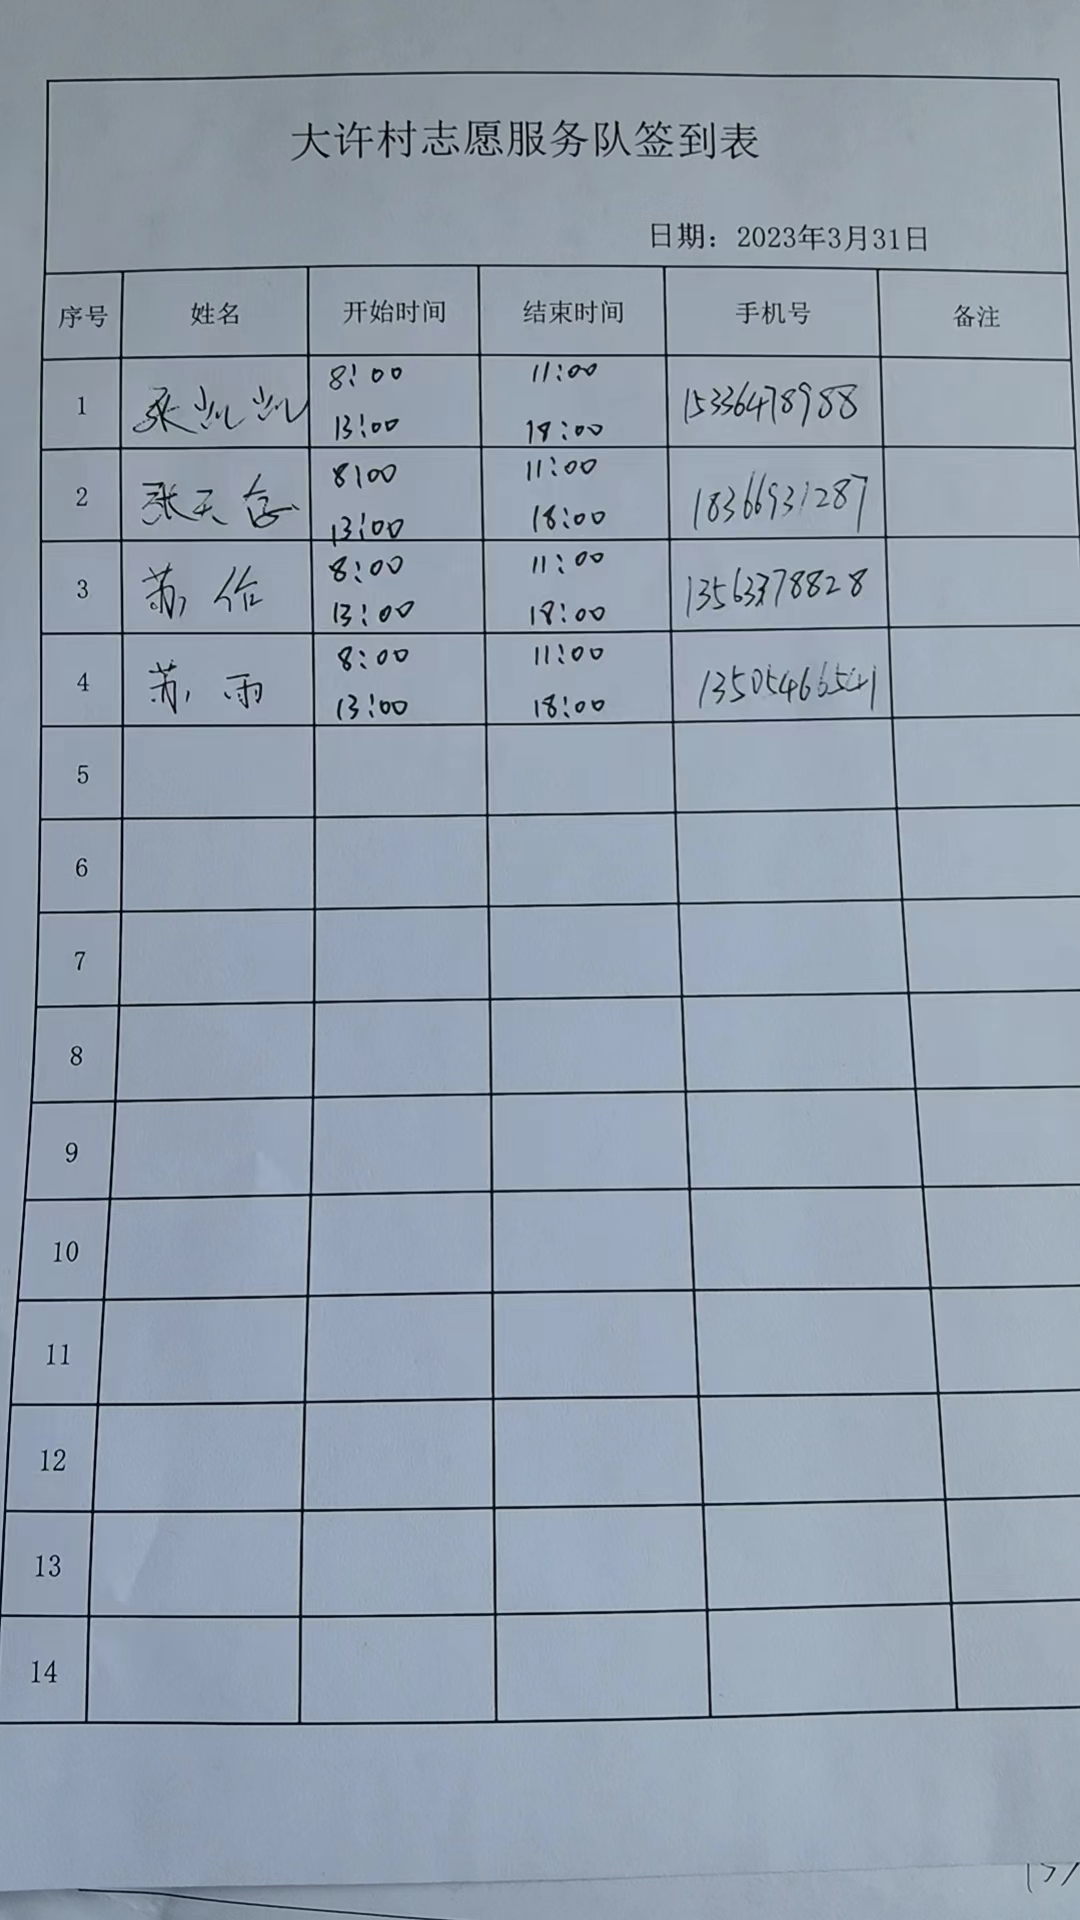 大许村志愿服务队签到表
日期：2023年3月31日
序号 姓名 开始时间 结束时间 手机号 备注
1 张凯凯 8:00 11:00 15336478988
13:00 18:00
2 张天 8:00 11:00 18366931287
13:00 18:00
3 苏 8:00 11:00 13563378828
13:00 18:00
4 苏雨 8:00 11:00 13505466541
13:00 18:00
5
6
7
8
9
10
11
12
13
14